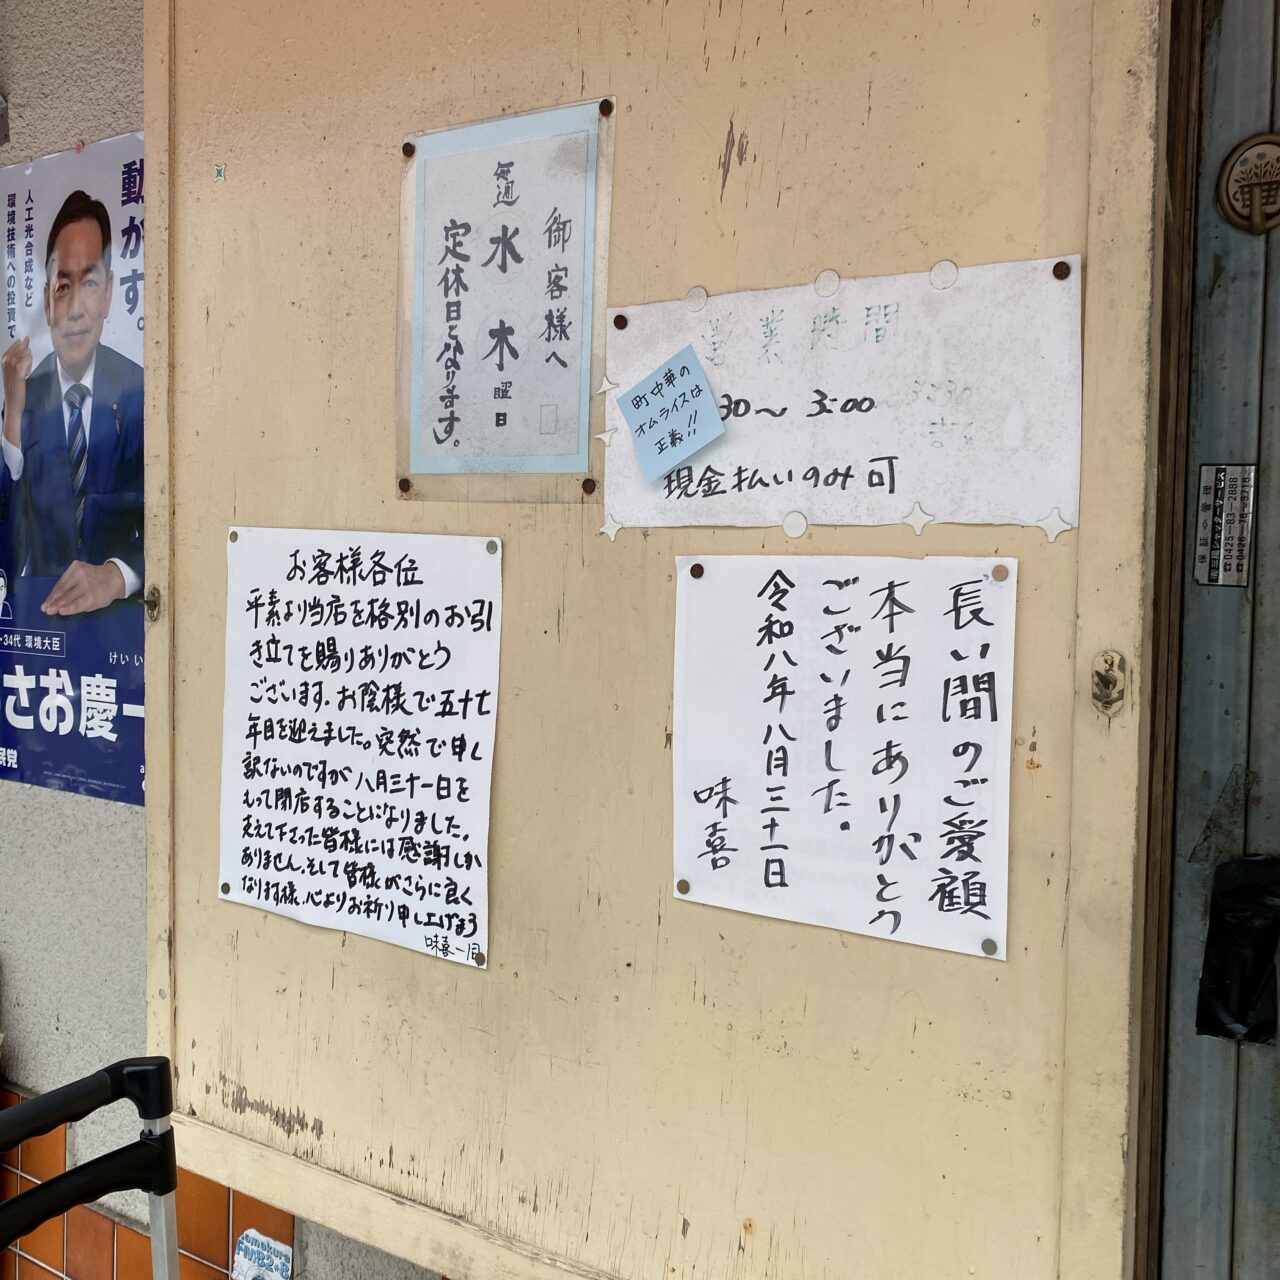 動かす。
人工光合成など
環境技術への投資で
34代 環境大臣
けいい
さお慶一
民党
御客様へ
毎週 水 木 曜日
定休日となります。
営業時間
30～3:00
現金払いのみ可
町中華の
オムライスは
正義!!
お客様各位
平素より当店を格別のお引
き立てを賜りありがとう
ございます。お陰様で五十七
年目を迎えました。突然で申し
訳ないのですが八月三十一日を
もって閉店することになりました。
支えて下さった皆様には感謝しか
ありません。そして皆様がさらに良く
なります様、心よりお祈り申し上げます
味喜一同
長い間のご愛顧
本当にありがとう
ございました。
令和八年八月三十一日
味喜
保証の管理
☎0425-83-2888
☎0426-76-9718
Kamakura
FM82.8